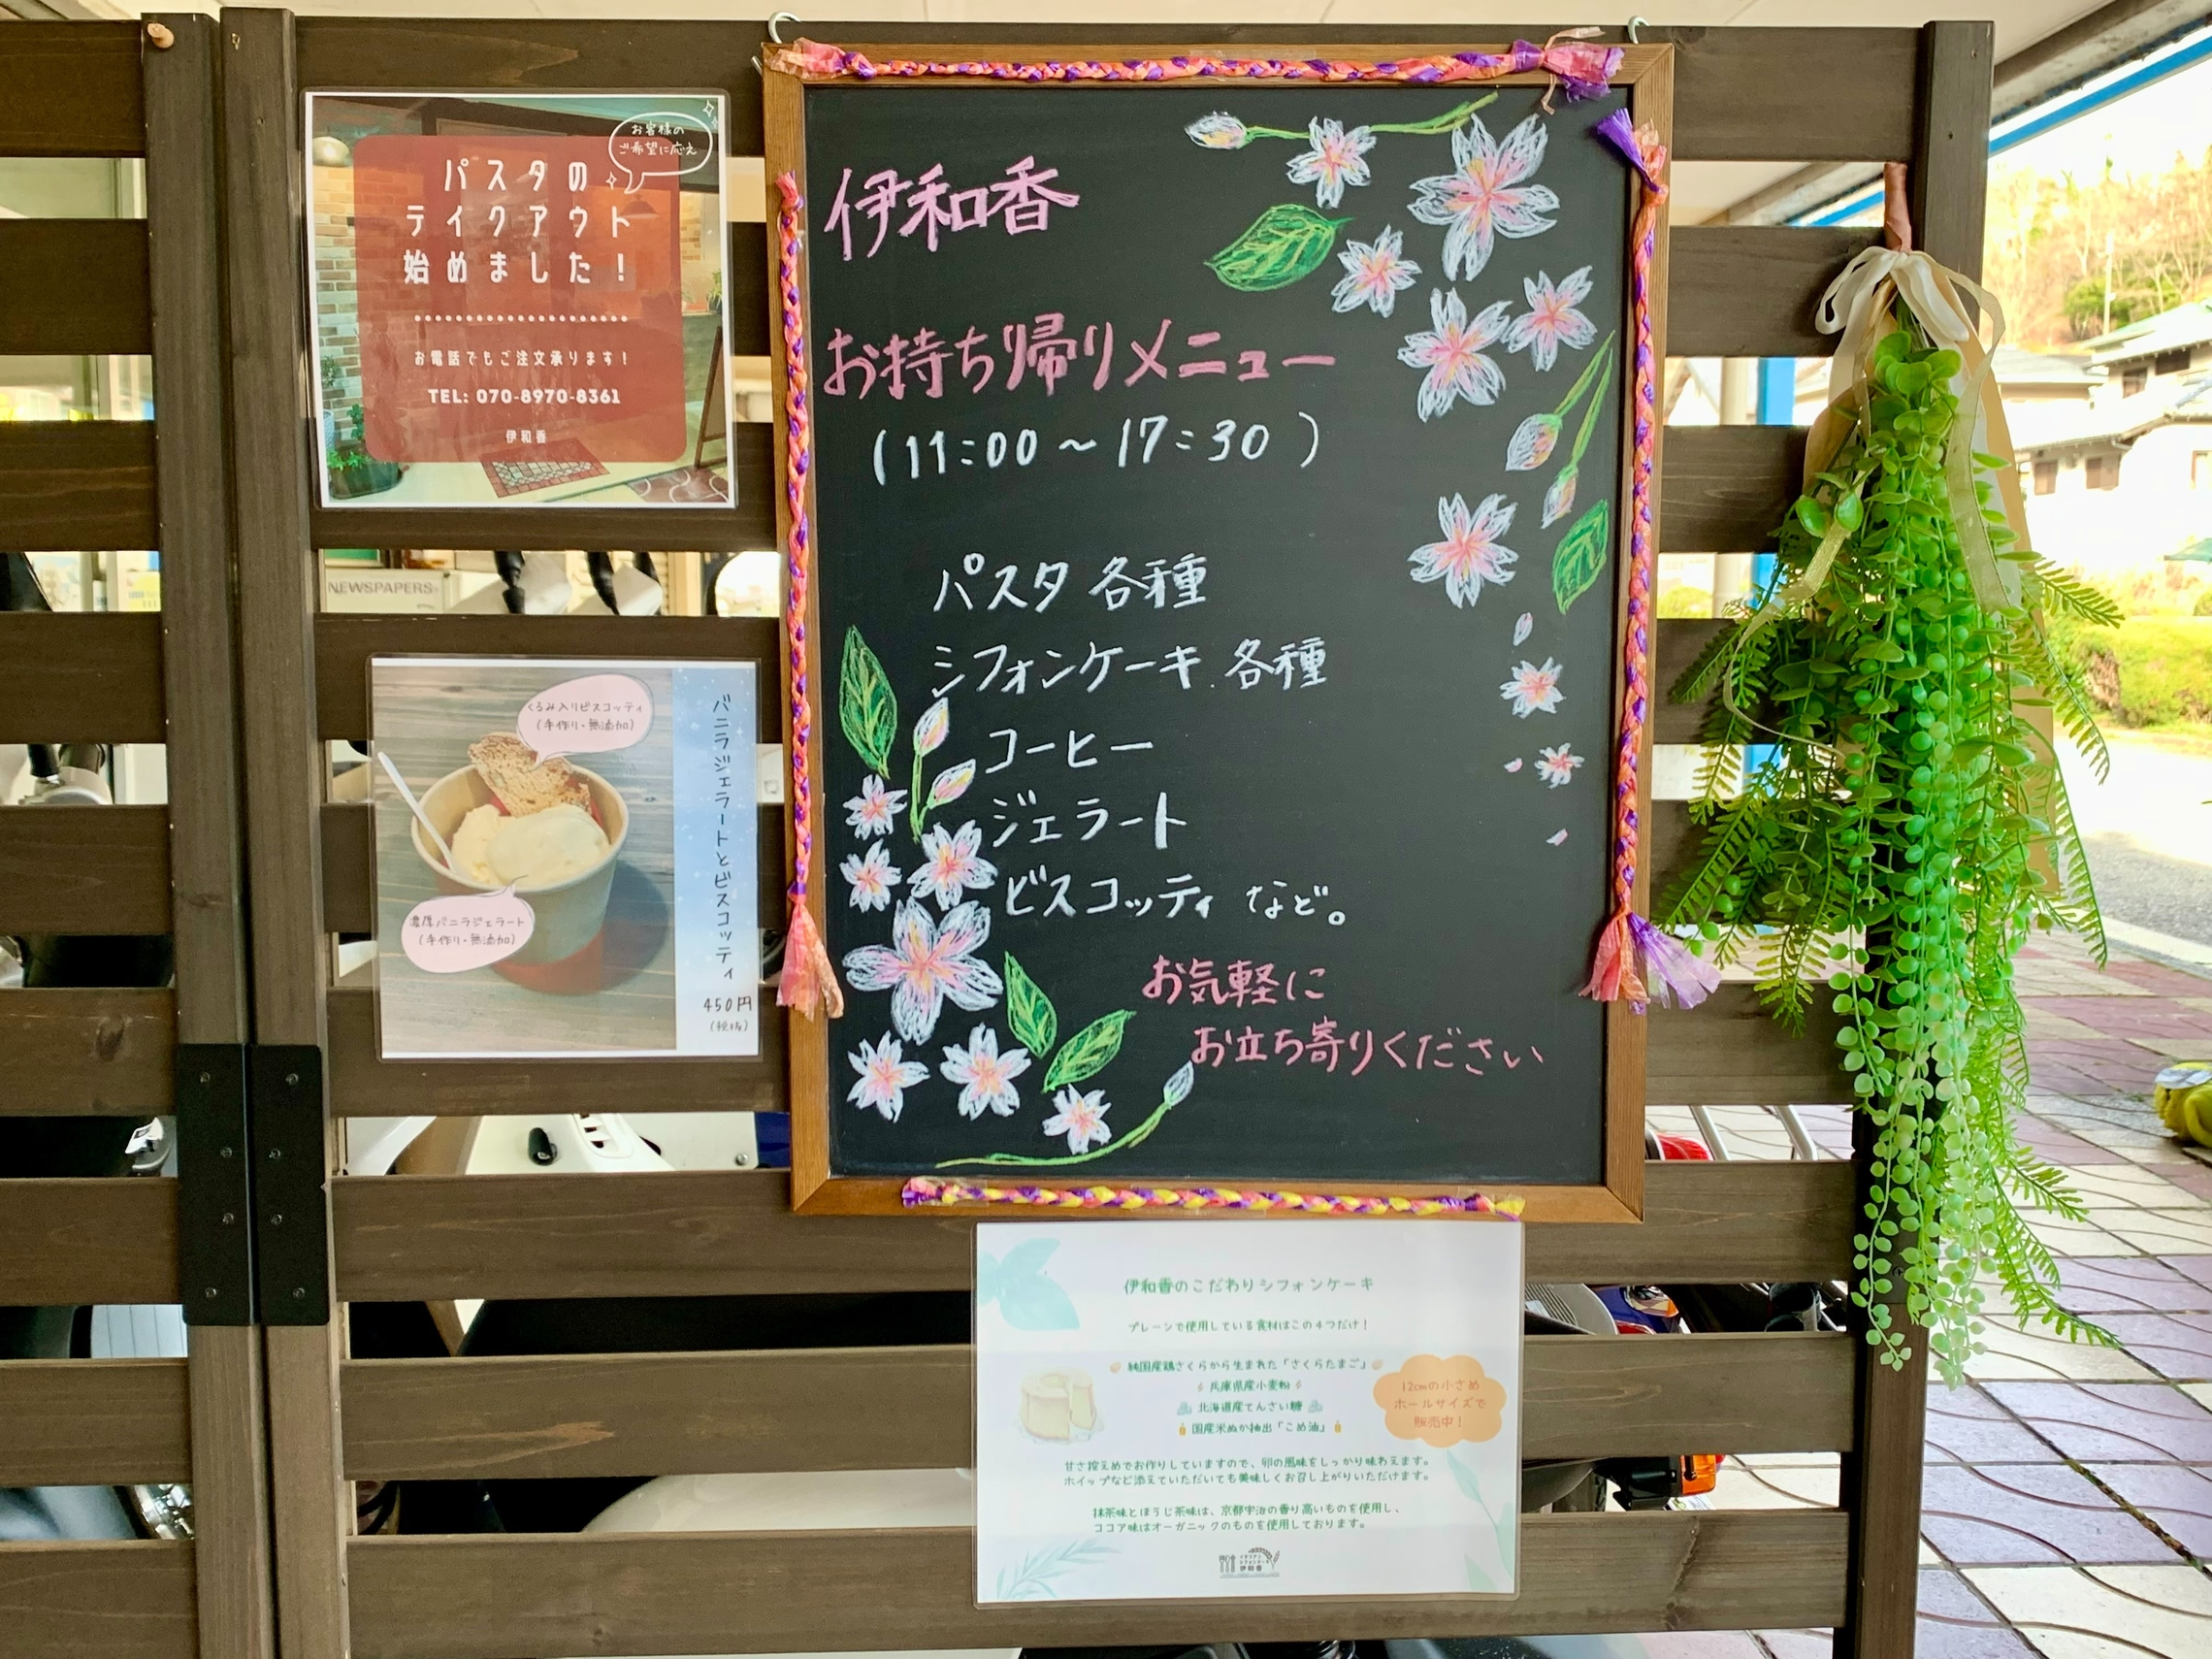 お客様の
ご希望に応え
パスタの
テイクアウト
始めました！
お電話でもご注文承ります！
TEL: 070-8970-8361
伊和香
NEWSPAPERS
くるみ入りビスコッティ
（手作り・無添加）
濃厚バニラジェラート
（手作り・無添加）
バニラジェラートとビスコッティ
450円
（税抜）
伊和香
お持ち帰りメニュー
（11:00～17:30）
パスタ 各種
シフォンケーキ 各種
コーヒー
ジェラート
ビスコッティ など。
お気軽に
お立ち寄りください
伊和香のこだわりシフォンケーキ
プレーンで使用している食材はこの4つだけ！
純国産鶏さくらから生まれた「さくらたまご」
兵庫県産小麦粉
北海道産てんさい糖
国産米ぬか抽出「こめ油」
12cmの小さめ
ホールサイズで
販売中！
甘さ控えめでお作りしていますので、卵の風味をしっかり味わえます。
ホイップなど添えていただいても美味しくお召し上がりいただけます。
抹茶味とほうじ茶味は、京都宇治の香り高いものを使用し、
ココア味はオーガニックのものを使用しております。
伊和香